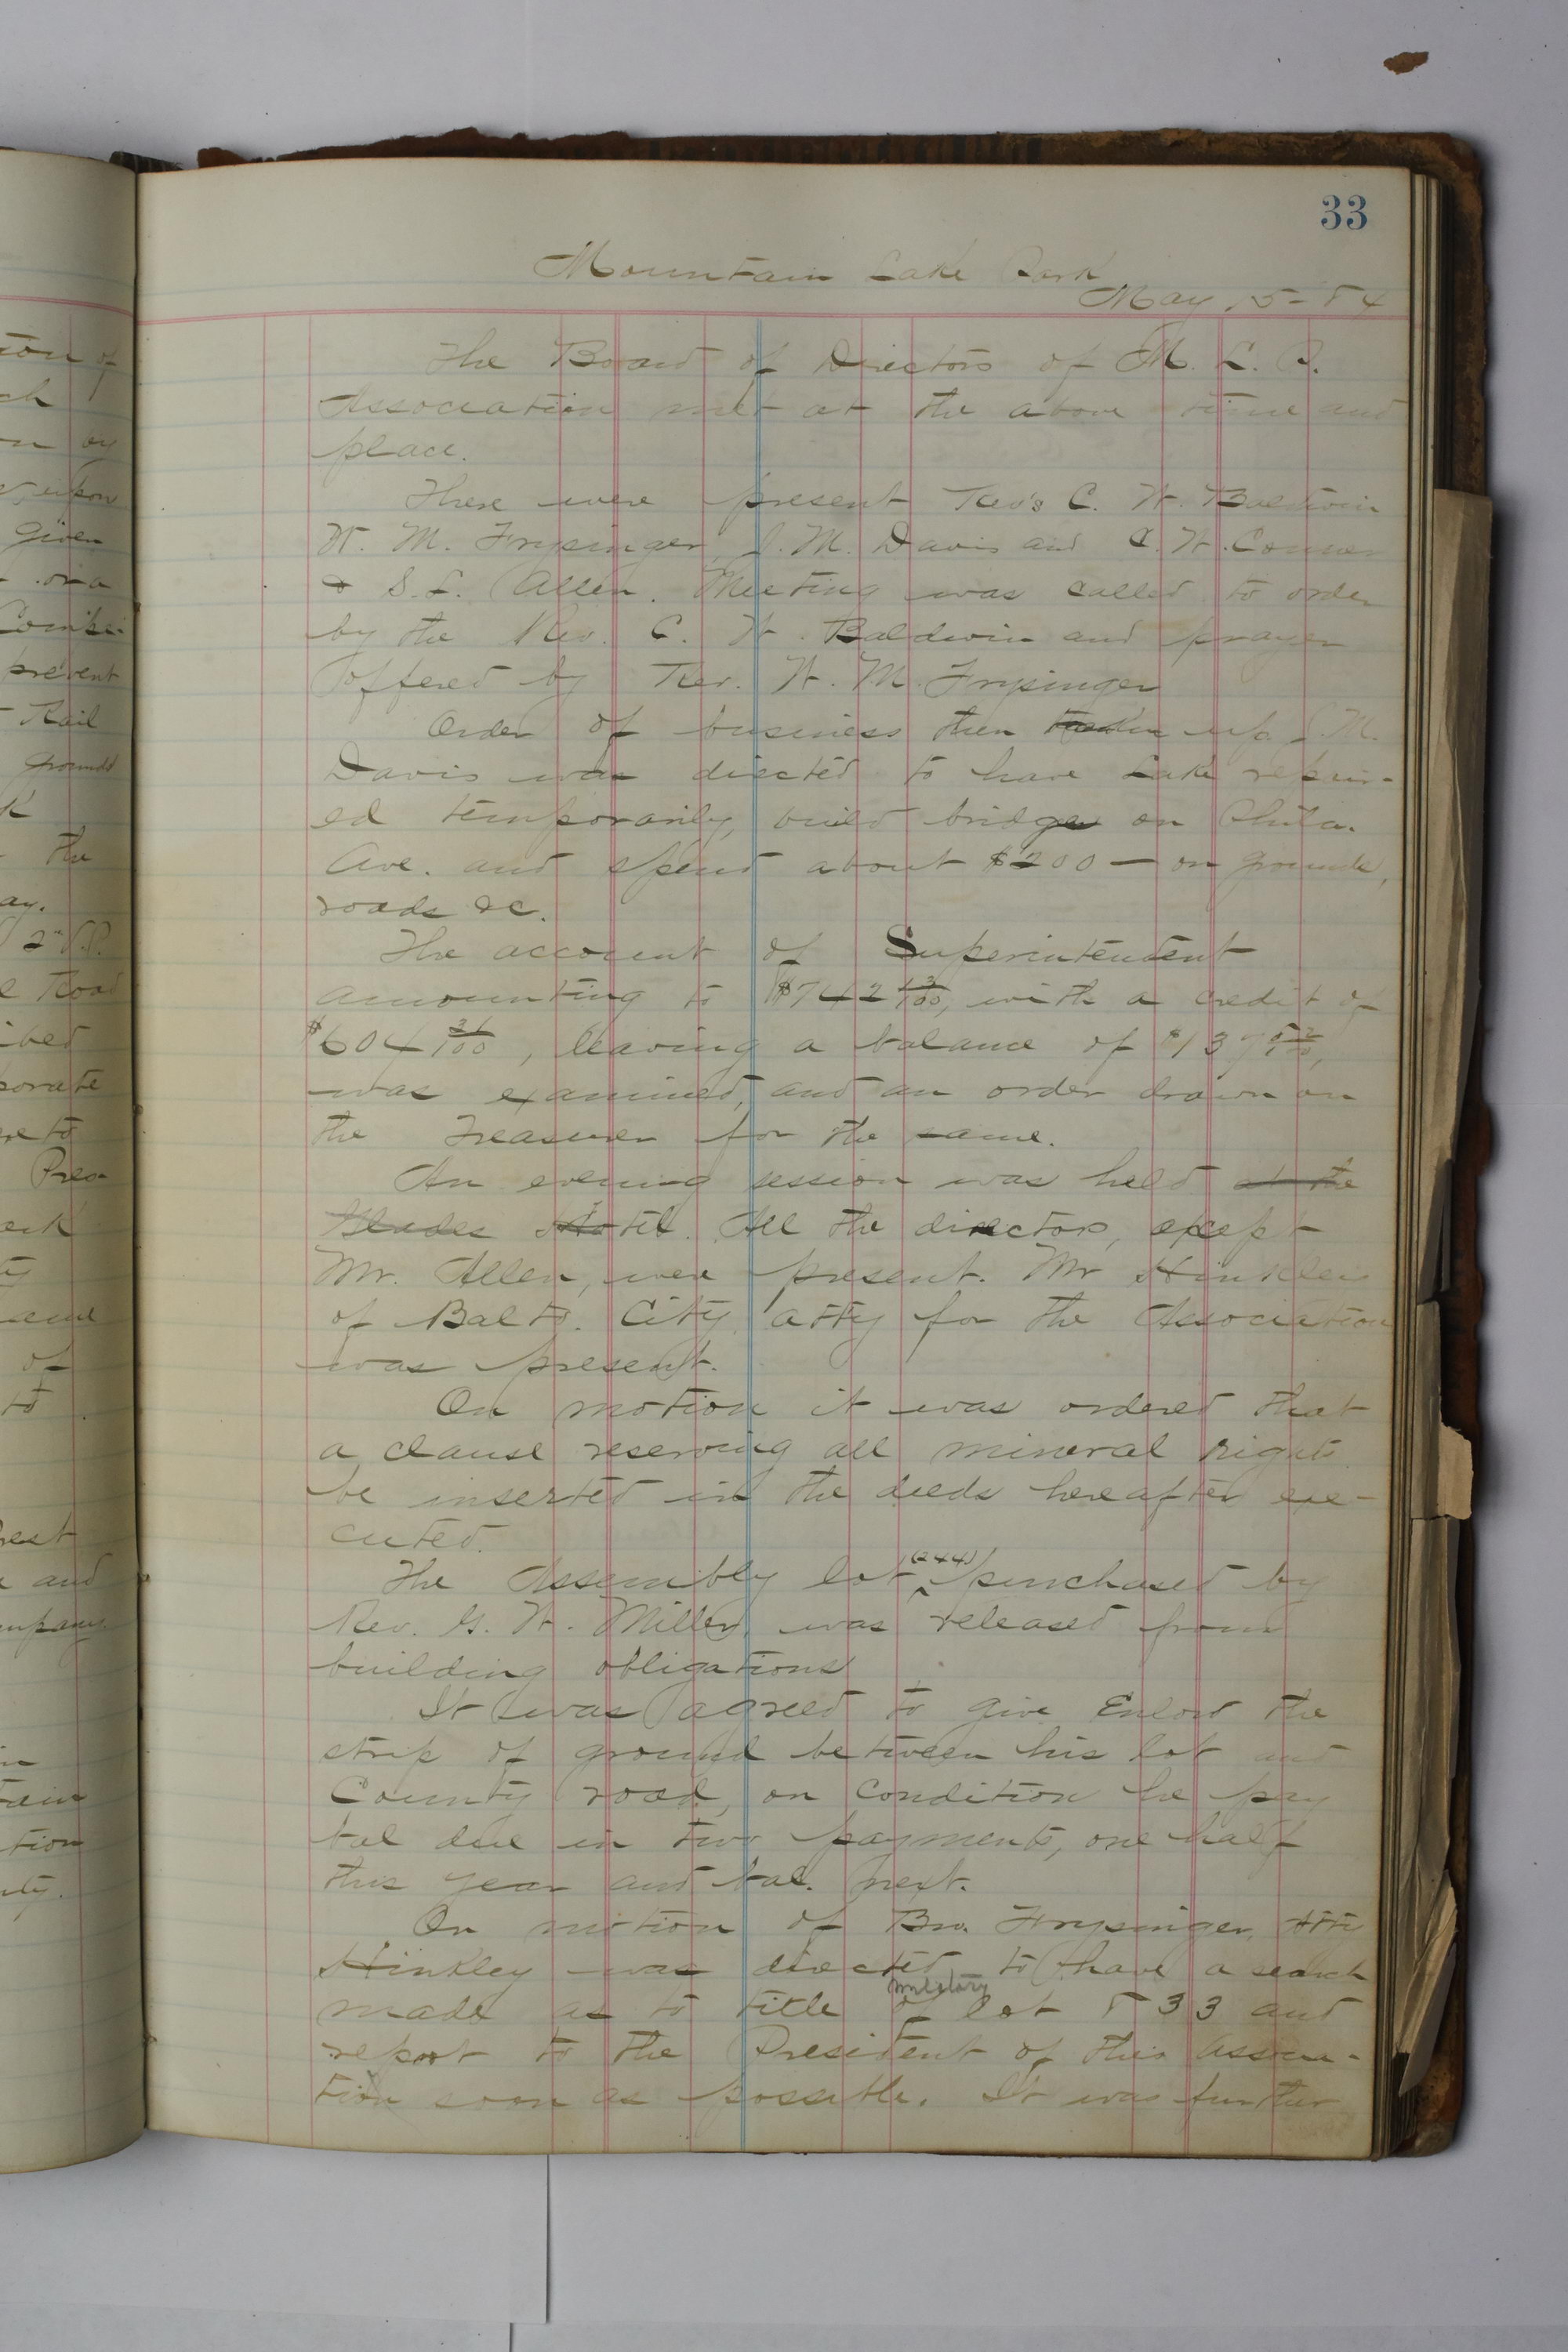 33
Mountain Lake Park
May 15-84
The Board of Directors of M. L. P.
Association met at the above time and
place.
There were present Rev's C. W. Baldwin
W. M. Frysinger, J. M. Davis and C. W. Conner
& S. L. Allen. Meeting was called to order
by the Rev. C. W. Baldwin and prayer
offered by Rev. W. M. Frysinger
Order of business then taken up. J. M.
Davis was directed to have Lake repair-
ed temporarily, build bridge on Phila.
Ave. and spend about $200 — on grounds,
roads &c.
The account of Superintendent
amounting to $742 13/100, with a credit of
$604 31/100, leaving a balance of $137 82/100,
was examined, and an order drawn on
the Treasurer for the same.
An evening session was held at the
Glades Hotel. All the directors, except
Mr. Allen, were present. Mr Hinkley
of Balto. City atty for the Association
was present.
On motion it was ordered that
a clause reserving all mineral rights
be inserted in the deeds hereafter exe-
cuted.
The Assembly lot (244) purchased by
Rev. G. W. Miller, was released from
building obligations
It was agreed to give Enlow the
strip of ground between his lot and
County road, on condition he pay
bal due in two payments, one half
this year and bal. next.
On motion of Bro. Frysinger, Atty
Hinkley was directed to have a search
made as to title of military lot 833 and
report to the President of this Associa-
tion soon as possible. It was further
ton of
ch
on by
upon
given
or a
prevent
Rail
grounds
k
the
ay.
2nd V.P.
e Road
ibed
porate
re to
Pres
ty
same
of
to
rest
e and
mpany
in
tain
tion